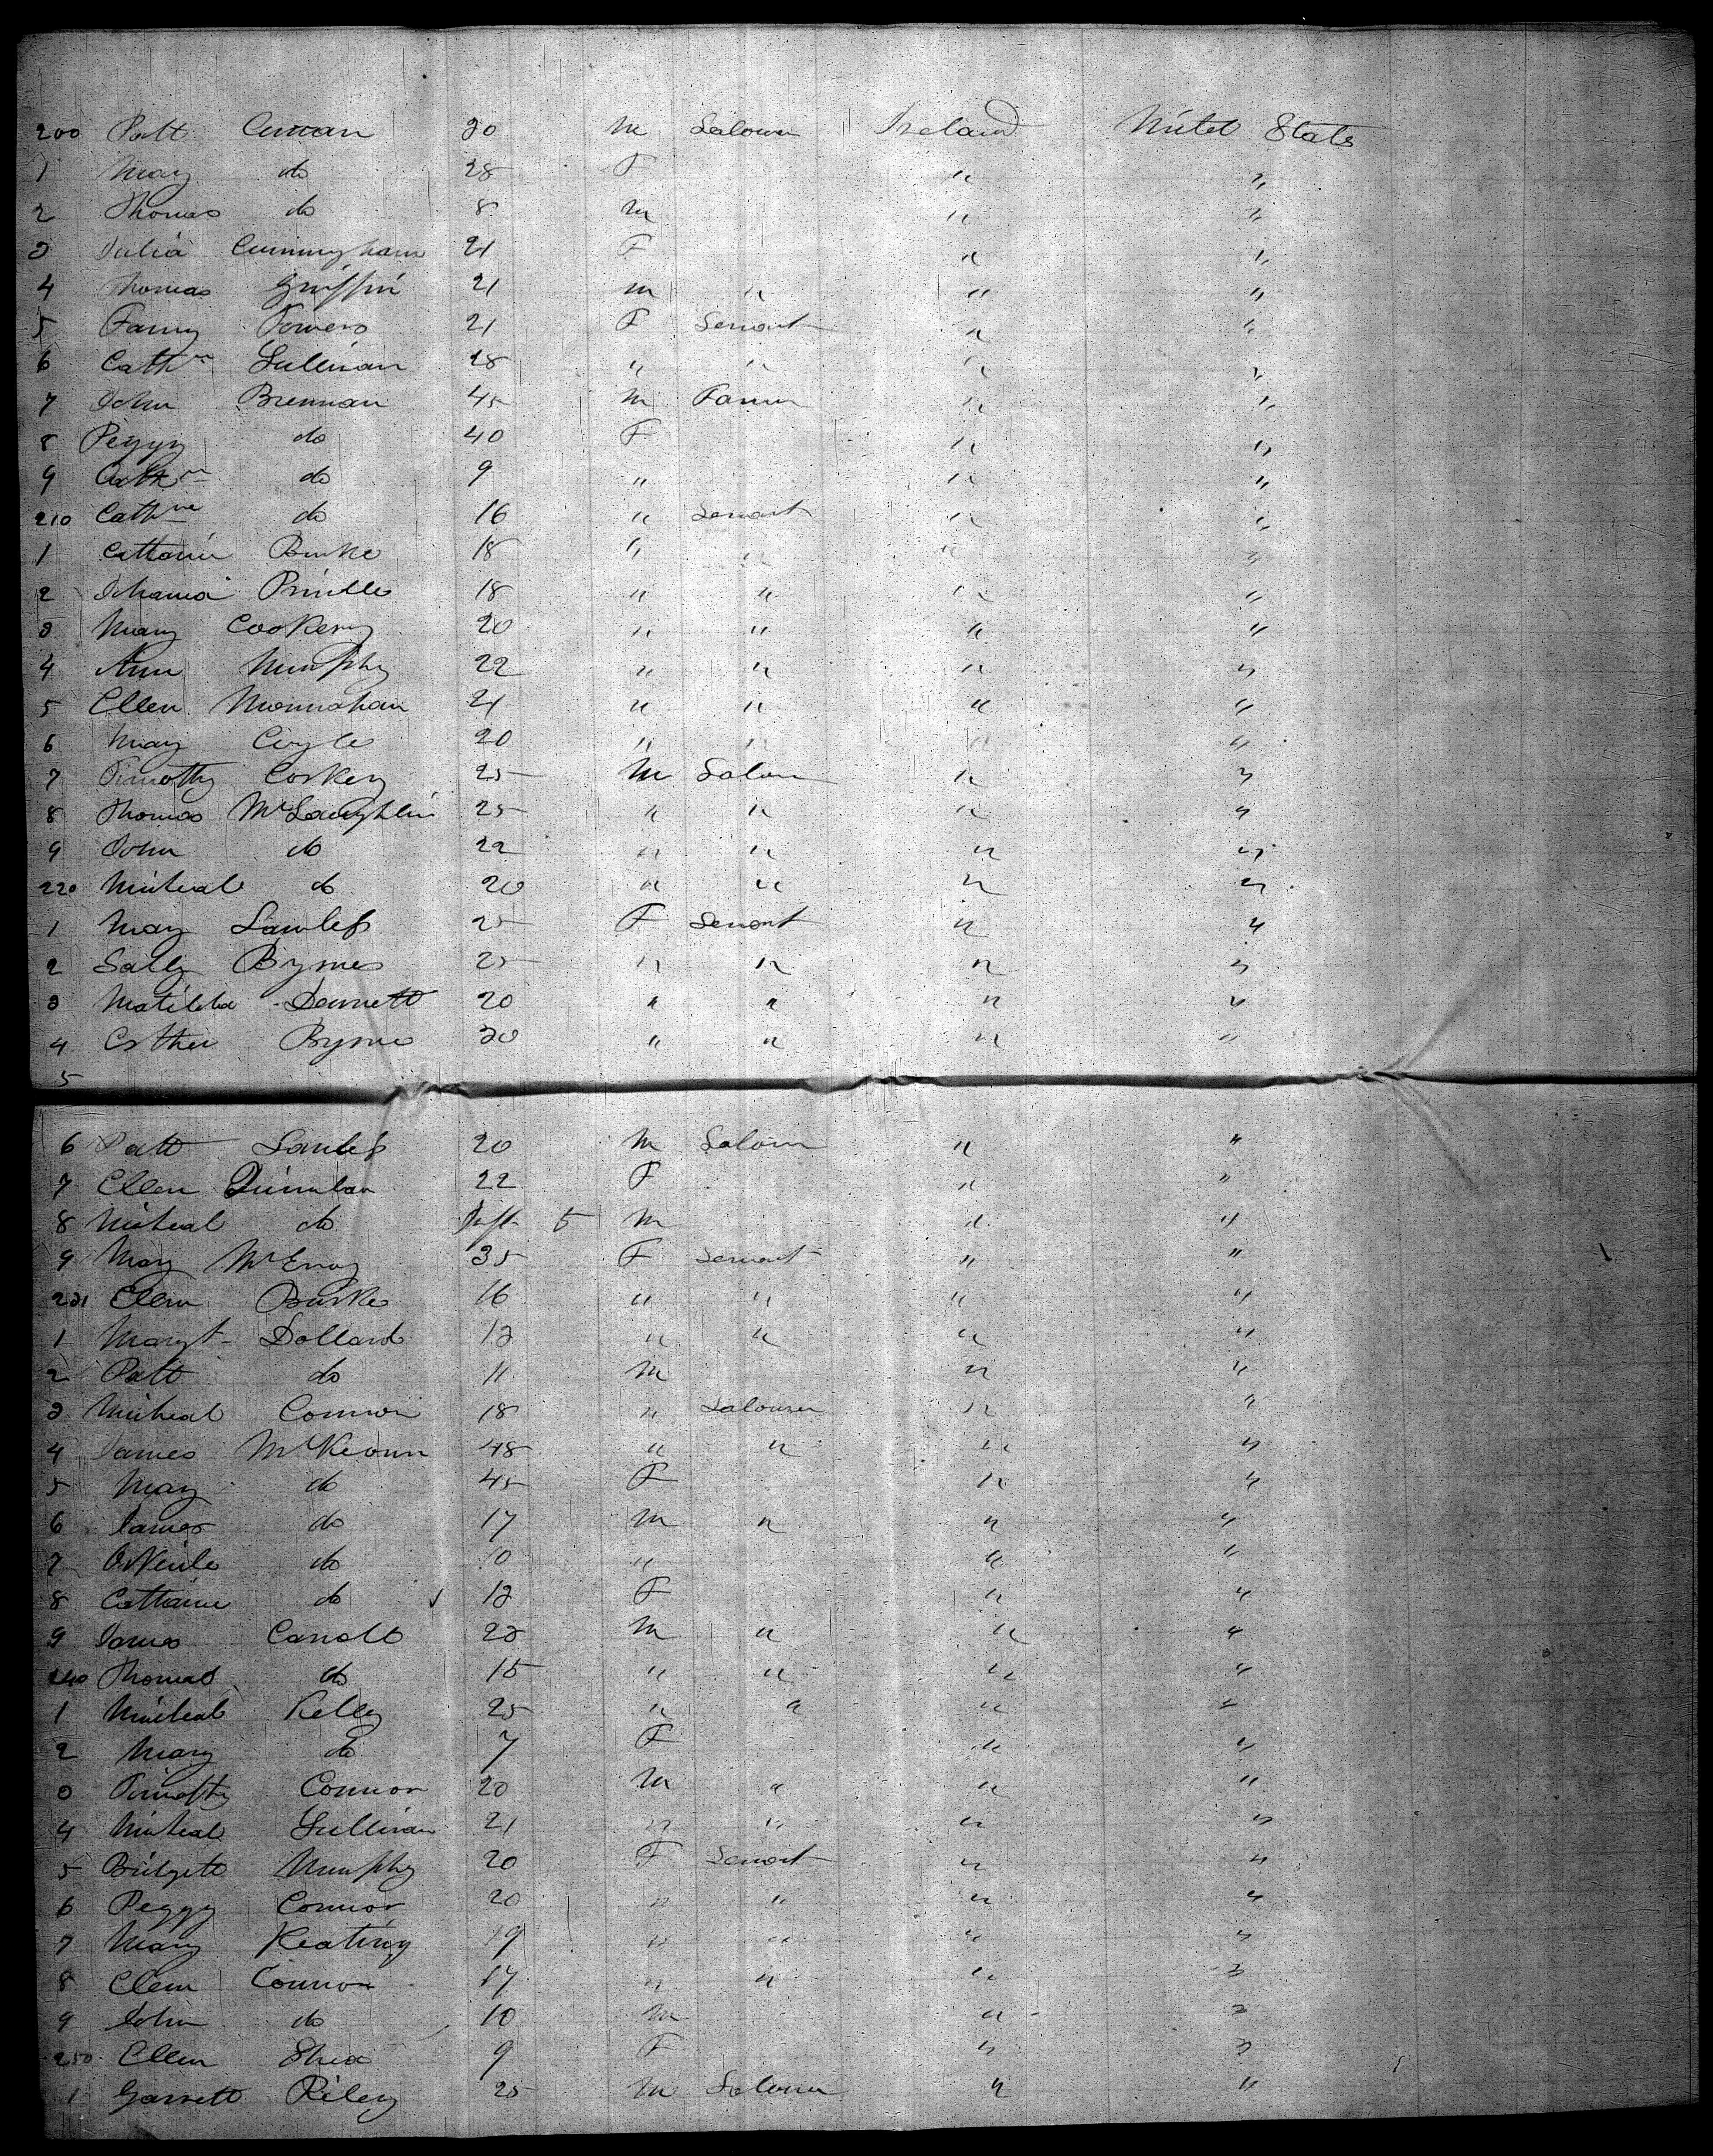 200 Patt Curran 30 M Labourer Ireland United States
1 Mary do 28 F " "
2 Thomas do 8 M " "
3 Julia Cunningham 21 F " "
4 Thomas Griffin 21 M " " "
5 Fanny Powers 21 F Servant " "
6 Cathn Sullivan 28 " " " "
7 John Brennan 45 M Farmer " "
8 Peggy do 40 F " "
9 do 9 " " "
210 Cathne do 16 " Servant " "
1 Catharine Burke 18 " " " "
2 Johanna 18 " " " "
3 Mary Cookery 20 " " " "
4 Ann Murphy 22 " " " "
5 Ellen Monnahan 21 " " " "
6 Mary Coyle 20 " " " "
7 Timothy Corkery 25 M Labour " "
8 Thomas McLaughlin 25 " " " "
9 John do 22 " " " "
220 Micheal do 20 " " " "
1 Mary Lawless 25 F Servant " "
2 Sally Byrnes 25 " " " "
3 Matilda Dennett 20 " " " "
4 Esther Byrne 30 " " " "
5
6 Patt Lawless 20 M Labour " "
7 Ellen Quinlan 22 F " "
8 Micheal do Inft 5 M " "
9 Mary McEvoy 35 F Servant " "
231 Ellen Burke 16 " " " "
1 Margt Dollard 13 " " " "
2 Patt do 11 M " "
3 Micheal Connor 18 " Labourer " "
4 James McKeown 48 " " " "
5 Mary do 45 F " "
6 James do 17 M " " "
7 do 10 " " "
8 Catharine do 13 F " "
9 James Carroll 23 M " " "
240 Thomas do 15 " " " "
1 Micheal Kelly 25 " " " "
2 Mary do 7 F " "
3 Timothy Connor 20 M " " "
4 Micheal Sullivan 21 " " " "
5 Bridgett Murphy 20 F Servant " "
6 Peggy Connor 20 " " " "
7 Mary Keating 19 " " " "
8 Ellen Connor 17 " " " "
9 John do 10 M " "
250 Ellen Shea 9 F " "
1 Garrett Riley 25 M Labourer " "